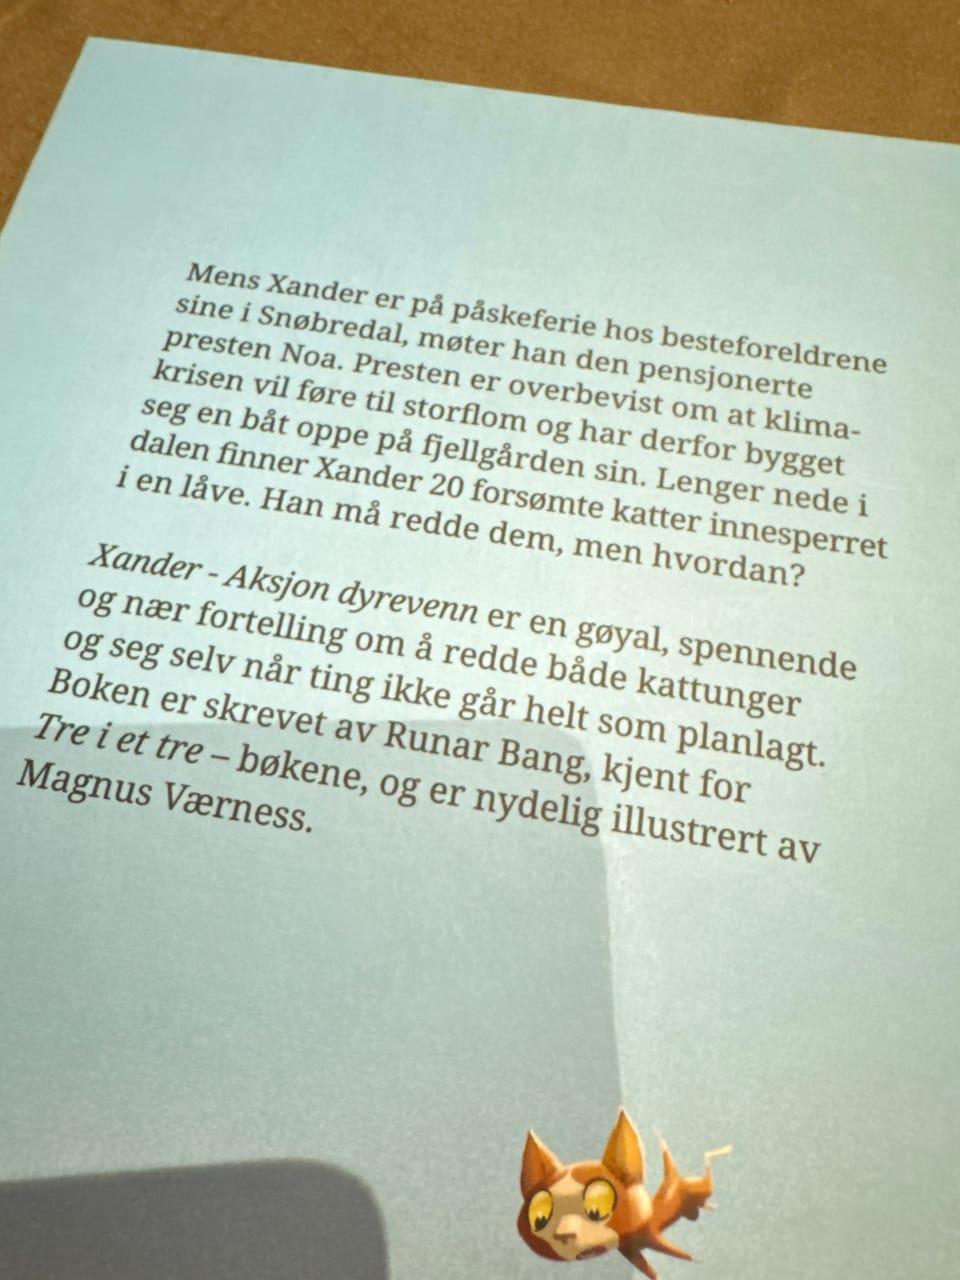 Mens Xander er på påskeferie hos besteforeldrene
sine i Snøbredal, møter han den pensjonerte
presten Noa. Presten er overbevist om at klima-
krisen vil føre til storflom og har derfor bygget
seg en båt oppe på fjellgården sin. Lenger nede i
dalen finner Xander 20 forsømte katter innesperret
i en låve. Han må redde dem, men hvordan?
Xander - Aksjon dyrevenn er en gøyal, spennende
og nær fortelling om å redde både kattunger
og seg selv når ting ikke går helt som planlagt.
Boken er skrevet av Runar Bang, kjent for
Tre i et tre – bøkene, og er nydelig illustrert av
Magnus Værness.